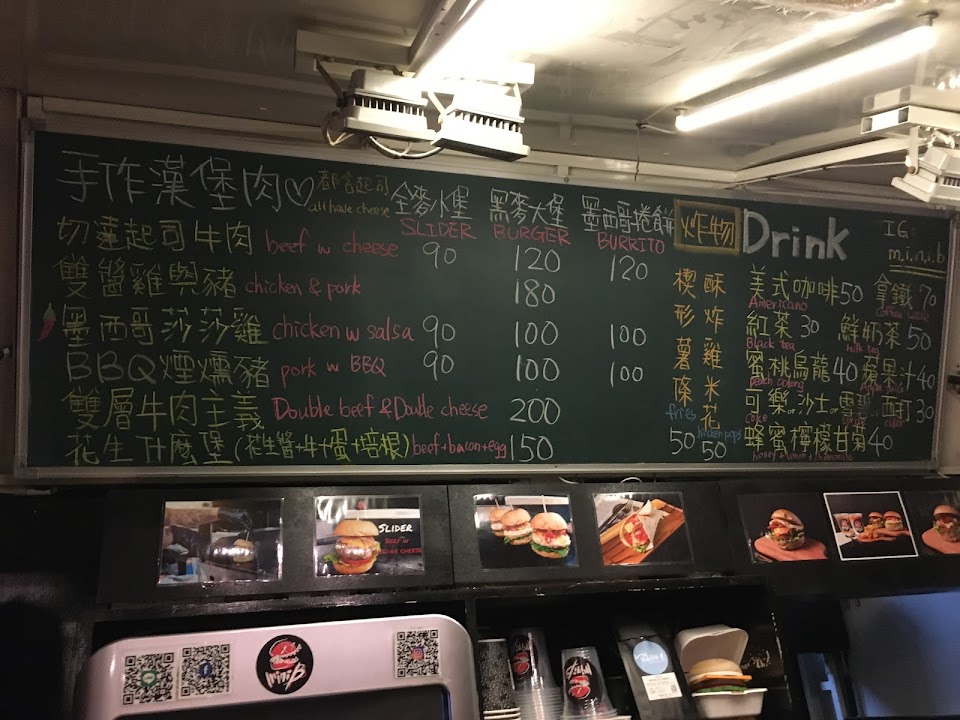 手作漢堡肉♡ 都含起司 all have cheese
全麥小堡 SLIDER
黑麥大堡 BURGER
墨西哥捲餅 BURRITO
切達起司牛肉 beef w cheese 90 120 120
雙醬雞與豬 chicken & pork 180
墨西哥莎莎雞 chicken w salsa 90 100 100
BBQ煙燻豬 pork w BBQ 90 100 100
雙層牛肉主義 Double beef & Double cheese 200
花生什麼堡(花生醬+牛+蛋+培根) beef+bacon+egg 150
炸物
楔形薯條 fries 50
酥炸雞米花 chicken pops 50
Drink
IG:
m.i.n.i.b
美式咖啡50 Americano
拿鐵70
紅茶30 Black tea
鮮奶茶50 milk tea
蜜桃烏龍40 peach oolong
蘋果汁40
可樂or沙士or雪碧or西打30
coke
蜂蜜檸檬甘菊40
SLIDER
BEEF W
CHEESE
mini B